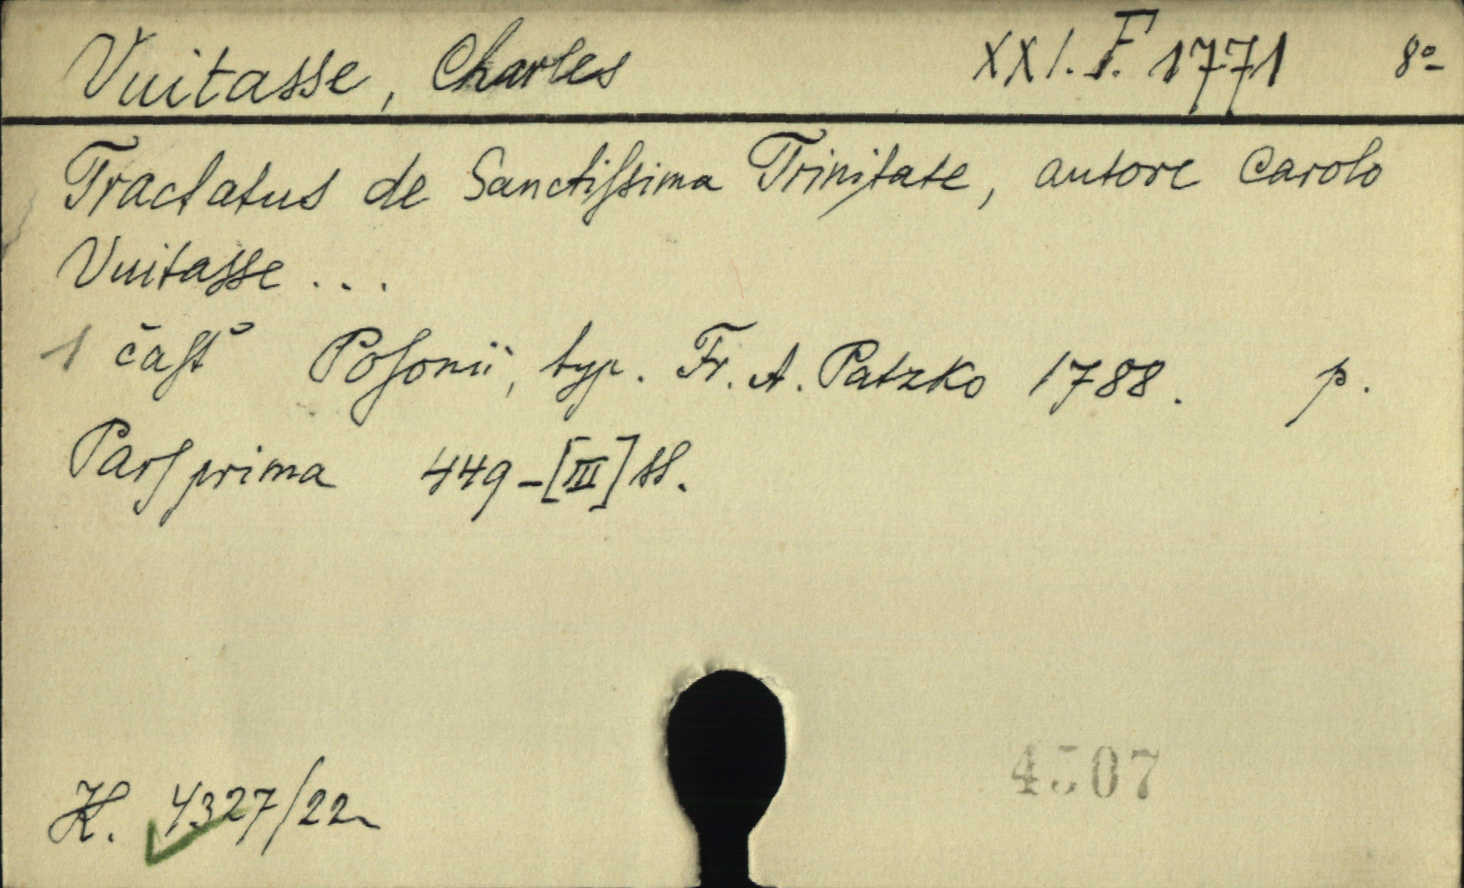 Vuitasse, Charles XXI. F. 1771 8°
Tractatus de Sanctiſsima Trinitate, autore Carolo
Vuitaſse ...
1 čaſť Poſonii, typ. Fr. A. Patzko 1788. p.
Parſ prima 449-[III] ss.
H. 4327/22